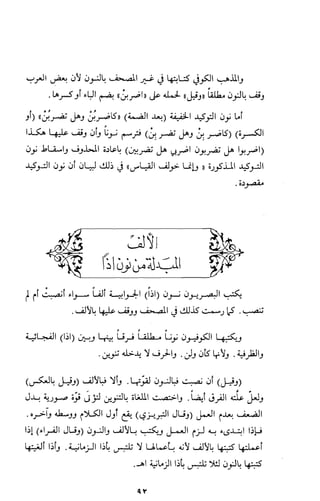 والمذهب الكوفي كتابتها في غير المصحف بالنون لأن بعض العرب
وقف بالنون مطلقاً «وقيل» لحمله على «اضربنْ» بضم الباء أو كسرها.
أما نون التوكيد الخفيفة (بعد الضمة) (كاضربُنْ وهل تضربُنْ) (أو
الكسرة) (كاضربِنْ وهل تضربِنْ) فترسم نوناً وأن وقف عليها هكذا
(اضربوا هل تضربون اضربي هل تضربين) باعادة المحذوف واسقاط نون
التوكيد المذكورة «وإنما خولف القياس» في ذلك لبيان أن نون التوكيد
مقصودة.
الألف
المبدلة من نون إذاً
يكتب البصريون نون (اذاً) الجوابية ألفاً سواء أنصبتْ أم لم
تنصب. كما رسمت كذلك في المصحف ووقف عليها بالألف.
ويكتبها الكوفيون نوناً مطلقاً فرقاً بينها وبين (اذا) الفجائية
والظرفية. ولأنها كأن ولن. والحرف لا يدخله تنوين.
(وقيل) أن نصبت فبالنون لقوتها. وألا فبالألف (وقيل بالعكس)
ولعل علته الفرق أيضاً. واختصت الملغاة بالتنوين لتؤتى قوّة صورية بدل
الضعف بعدم العمل (وقال التبريزي) يقع أول الكلام ووسطه وآخره.
فإذا ابتدىء به لزم العمل ويكتب بالألف والنون (وقال الفراء) إذا
أعملتها كتبتها بالألف لأنه بأعمالها لا تلتبس بأذا الزمانية. وأذا ألغيتها
كتبتها بالنون لئلا تلتبس بأذا الزمانية اهـ.
٩٢